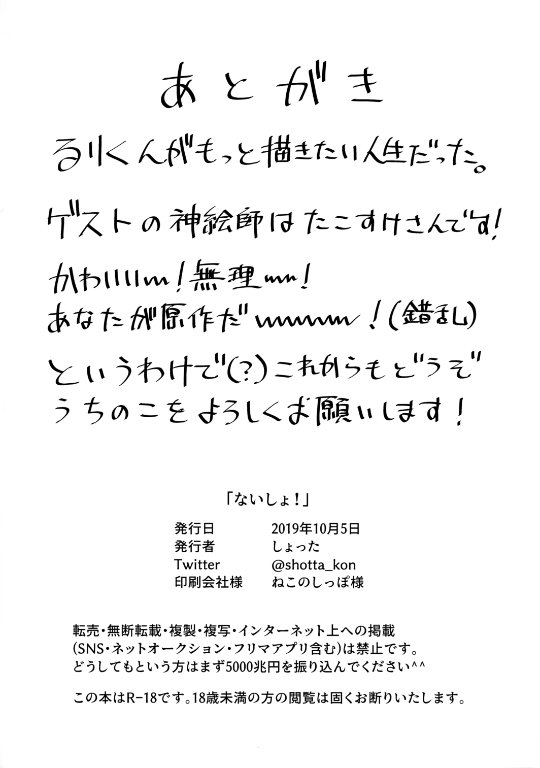 あとがき
るりくんがもっと描きたい人生だった。
ゲストの神絵師はたこすけさんです!
かわいいいい!無理ııı!
あなたが原作だwwwww!(錯乱)
というわけで(?)これからもどうぞ
うちのこをよろしくお願いします!
「ないしょ!」
発行日 2019年10月5日
発行者 しょった
Twitter @shotta_kon
印刷会社様 ねこのしっぽ様
転売・無断転載・複製・複写・インターネット上への掲載
(SNS・ネットオークション・フリマアプリ含む)は禁止です。
どうしてもという方はまず5000兆円を振り込んでください^^
この本はR-18です。18歳未満の方の閲覧は固くお断りいたします。